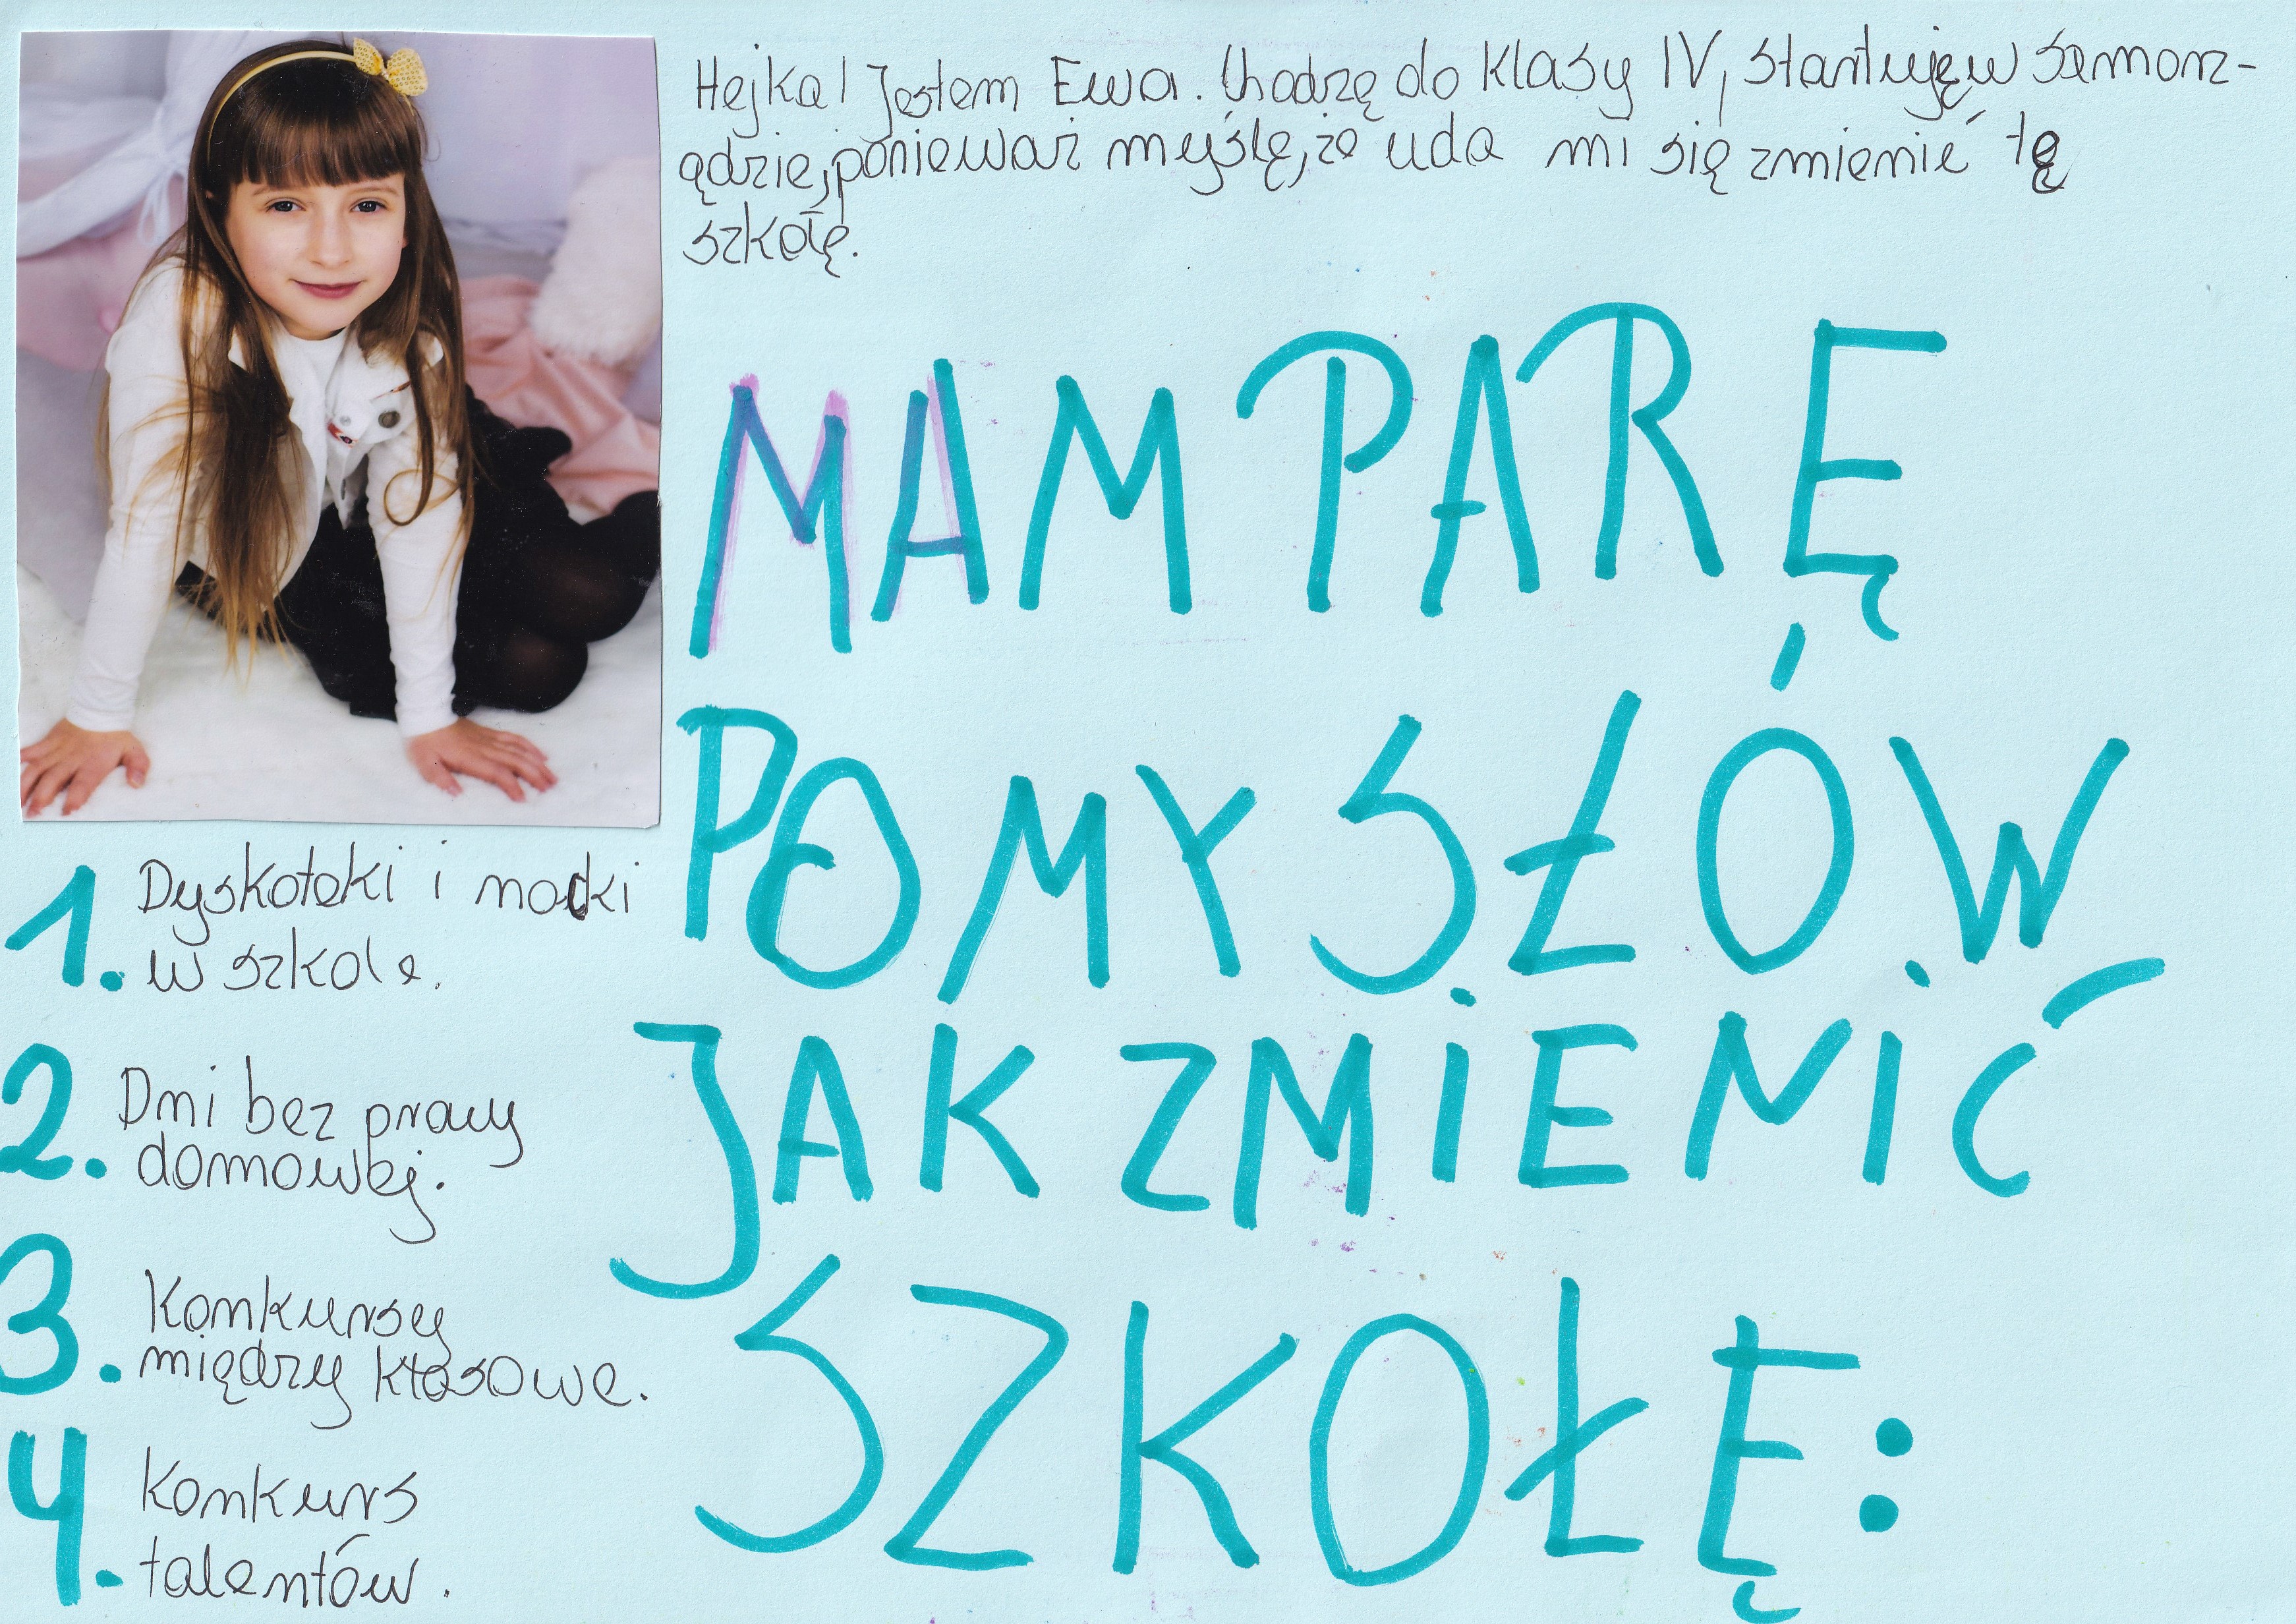 Hejka! Jestem Ewa. Chodzę do klasy IV, startuję w samorz-
ądzie, ponieważ myślę, że uda mi się zmienić tę
szkołę.
MAM PARĘ
POMYSŁÓW
JAK ZMIENIĆ
SZKOŁĘ:
1. Dyskoteki i nocki
w szkole.
2. Dni bez pracy
domowej.
3. Konkursy
między klasowe.
4. Konkurs
talentów.